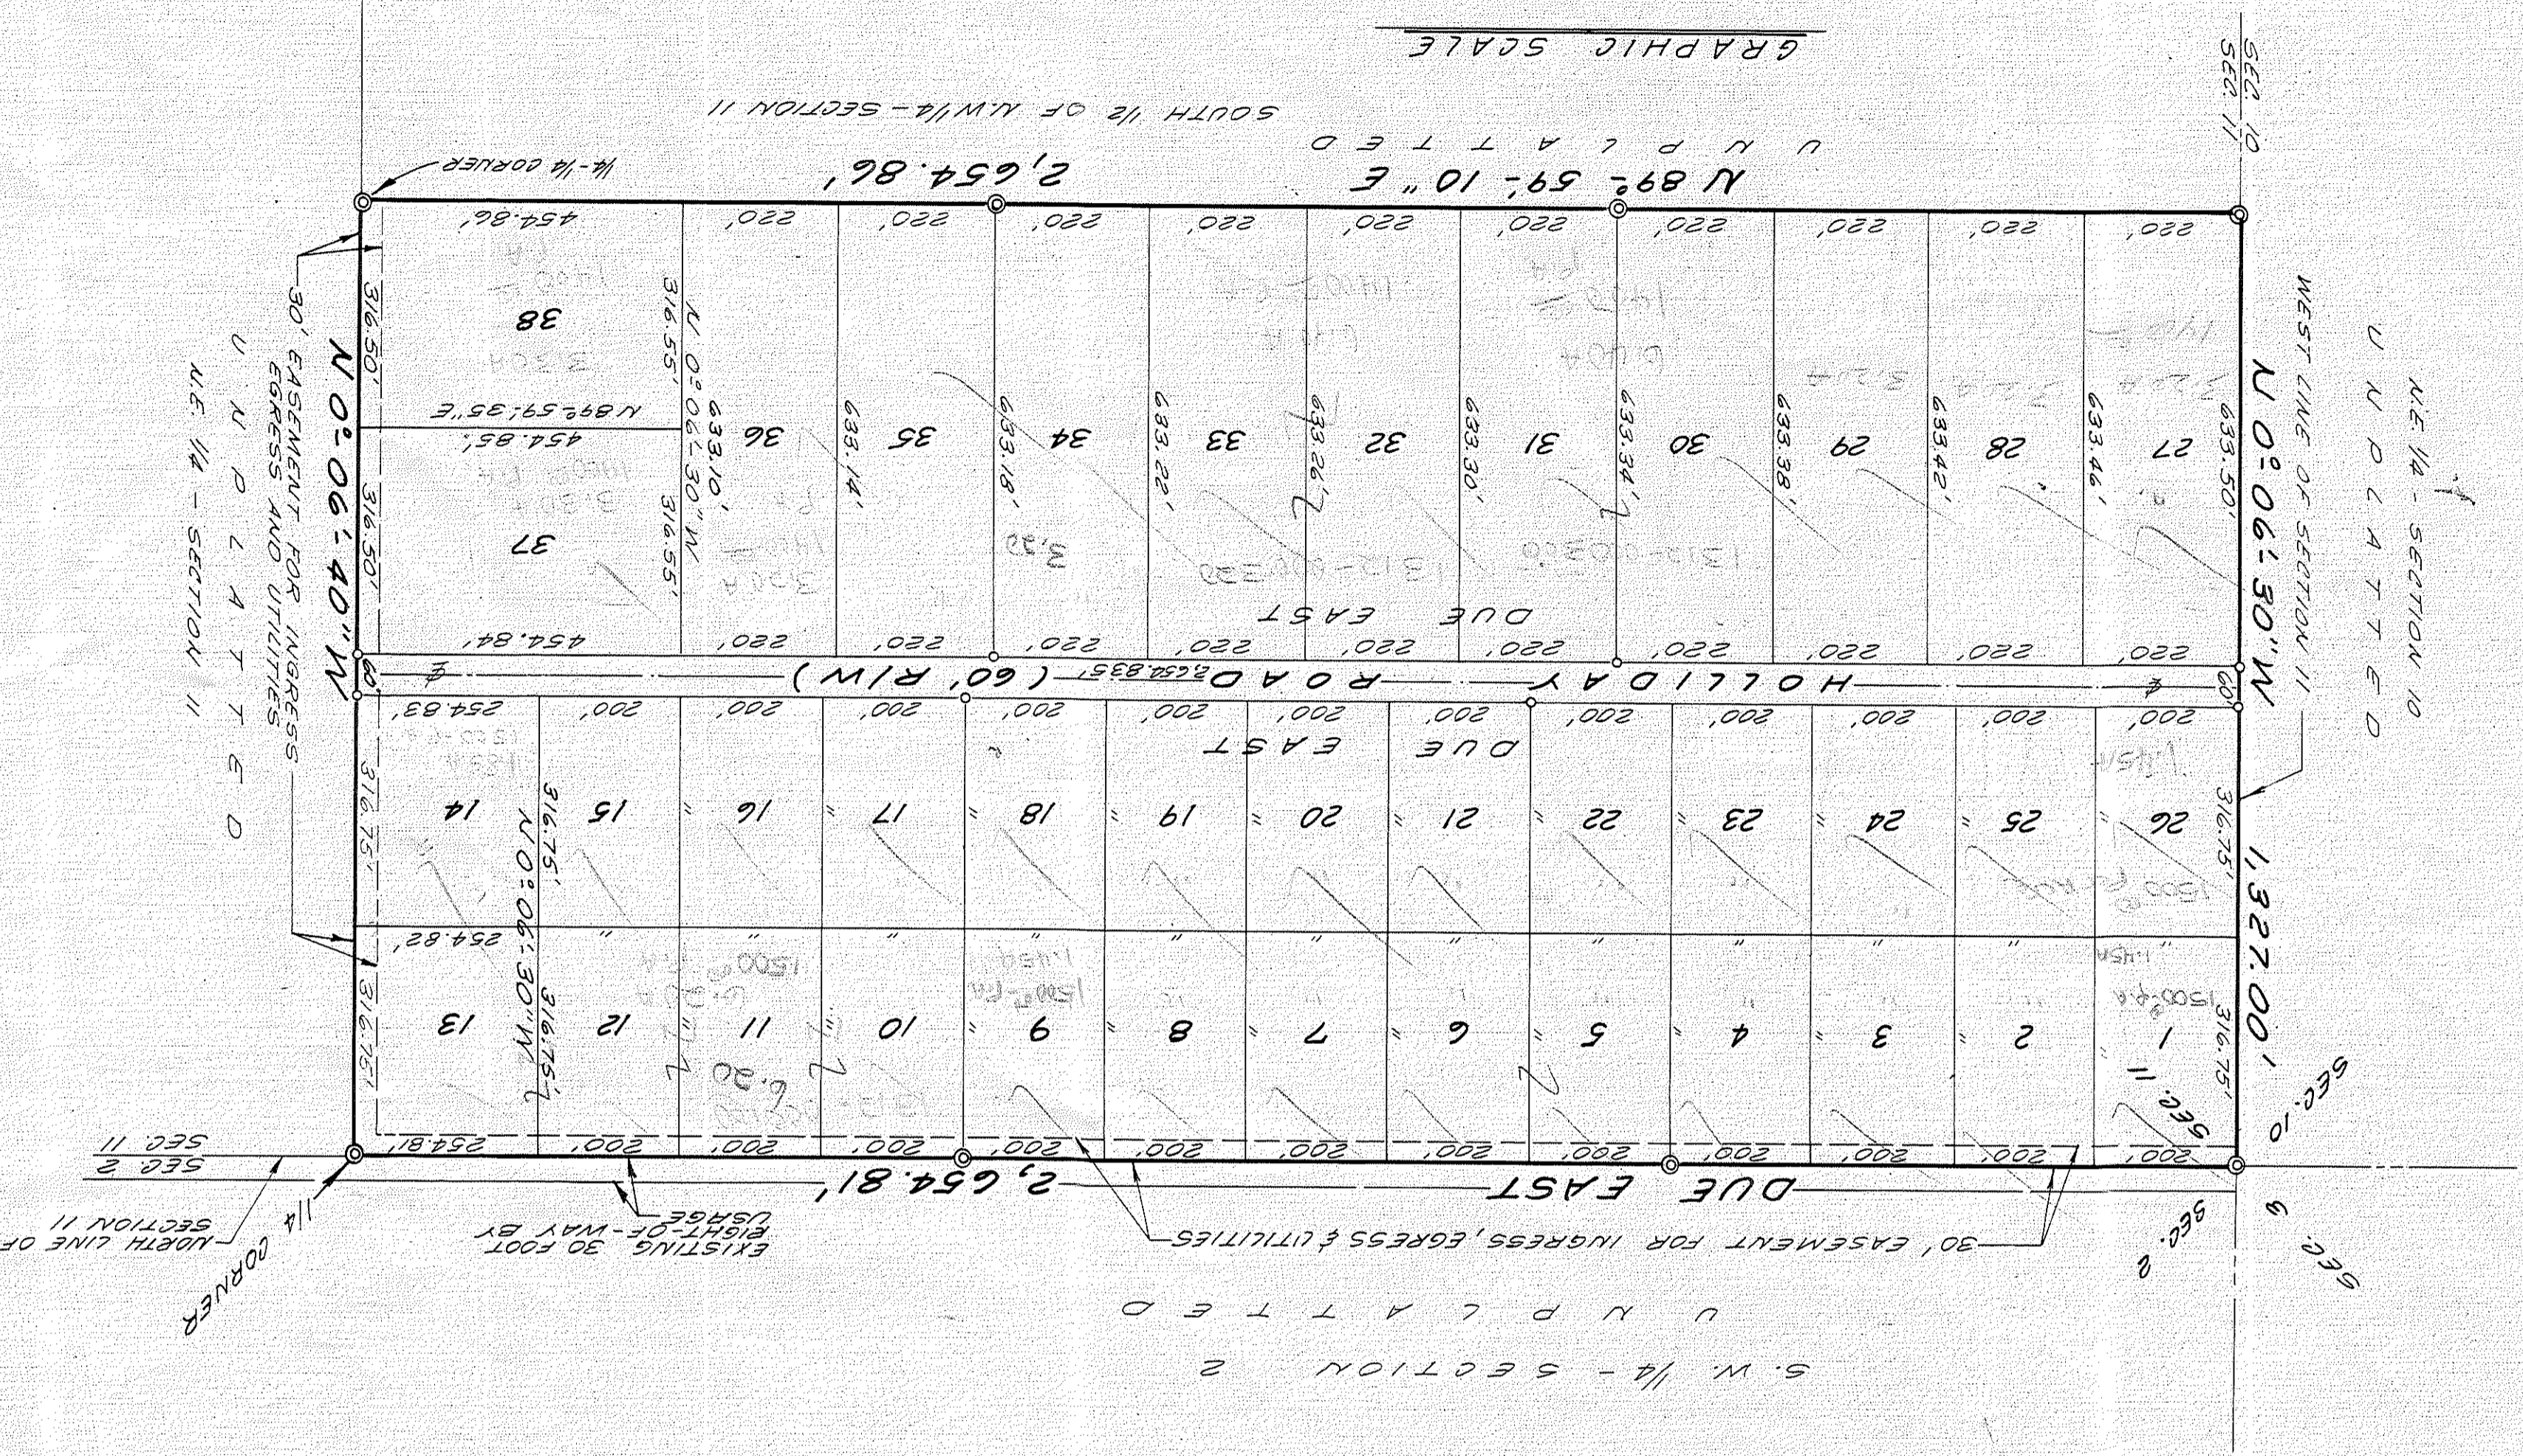 S. W. 1/4 - SECTION 2
UNPLATTED
SEC. 3
SEC. 2
30' EASEMENT FOR INGRESS, EGRESS & UTILITIES
EXISTING 30 FOOT
RIGHT-OF-WAY BY
USAGE
1/4 CORNER
NORTH LINE OF
SECTION 11
DUE EAST 2,654.81'
SEC. 2
SEC. 11
SEC. 10
SEC. 11
200' 200' 200' 200' 200' 200' 200' 200' 200' 200' 200' 200' 254.81'
1 " 2 " 3 " 4 " 5 " 6 " 7 " 8 " 9 " 10 " 11 " 12 13
316.75' 316.75' 316.75'
6.20
1500
1.45A
" " " " " " " " " " " " 254.82'
N 0°-06'-30" W
26 " 25 " 24 " 23 " 22 " 21 " 20 " 19 " 18 " 17 " 16 " 15 14
316.75' 316.75' 316.75'
1.45A
DUE EAST
200' 200' 200' 200' 200' 200' 200' 200' 200' 200' 200' 200' 254.83'
60' ℄ HOLLIDAY ROAD 2,654.835' (60' R/W) ℄ 60'
220' 220' 220' 220' 220' 220' 220' 220' 220' 220' 454.84'
DUE EAST
27 28 29 30 31 32 33 34 35 36 37
633.50' 633.46' 633.42' 633.38' 633.34' 633.30' 633.26' 633.22' 633.18' 633.14' 633.10'
N 0°-06'-30" W
316.55' 316.50'
3.20
454.85'
N 89°-59'-35" E
38
316.55' 316.50'
220' 220' 220' 220' 220' 220' 220' 220' 220' 220' 454.86'
N 89°-59'-10" E 2,654.86'
1/4-1/4 CORNER
UNPLATTED
SOUTH 1/2 OF N.W 1/4 - SECTION 11
SEC. 10
SEC. 11
N 0°-06'-30" W 1,327.00'
WEST LINE OF SECTION 11
UNPLATTED
N.E. 1/4 - SECTION 10
N 0°-06'-40" W
30' EASEMENT FOR INGRESS
EGRESS AND UTILITIES
UNPLATTED
N.E. 1/4 - SECTION 11
GRAPHIC SCALE